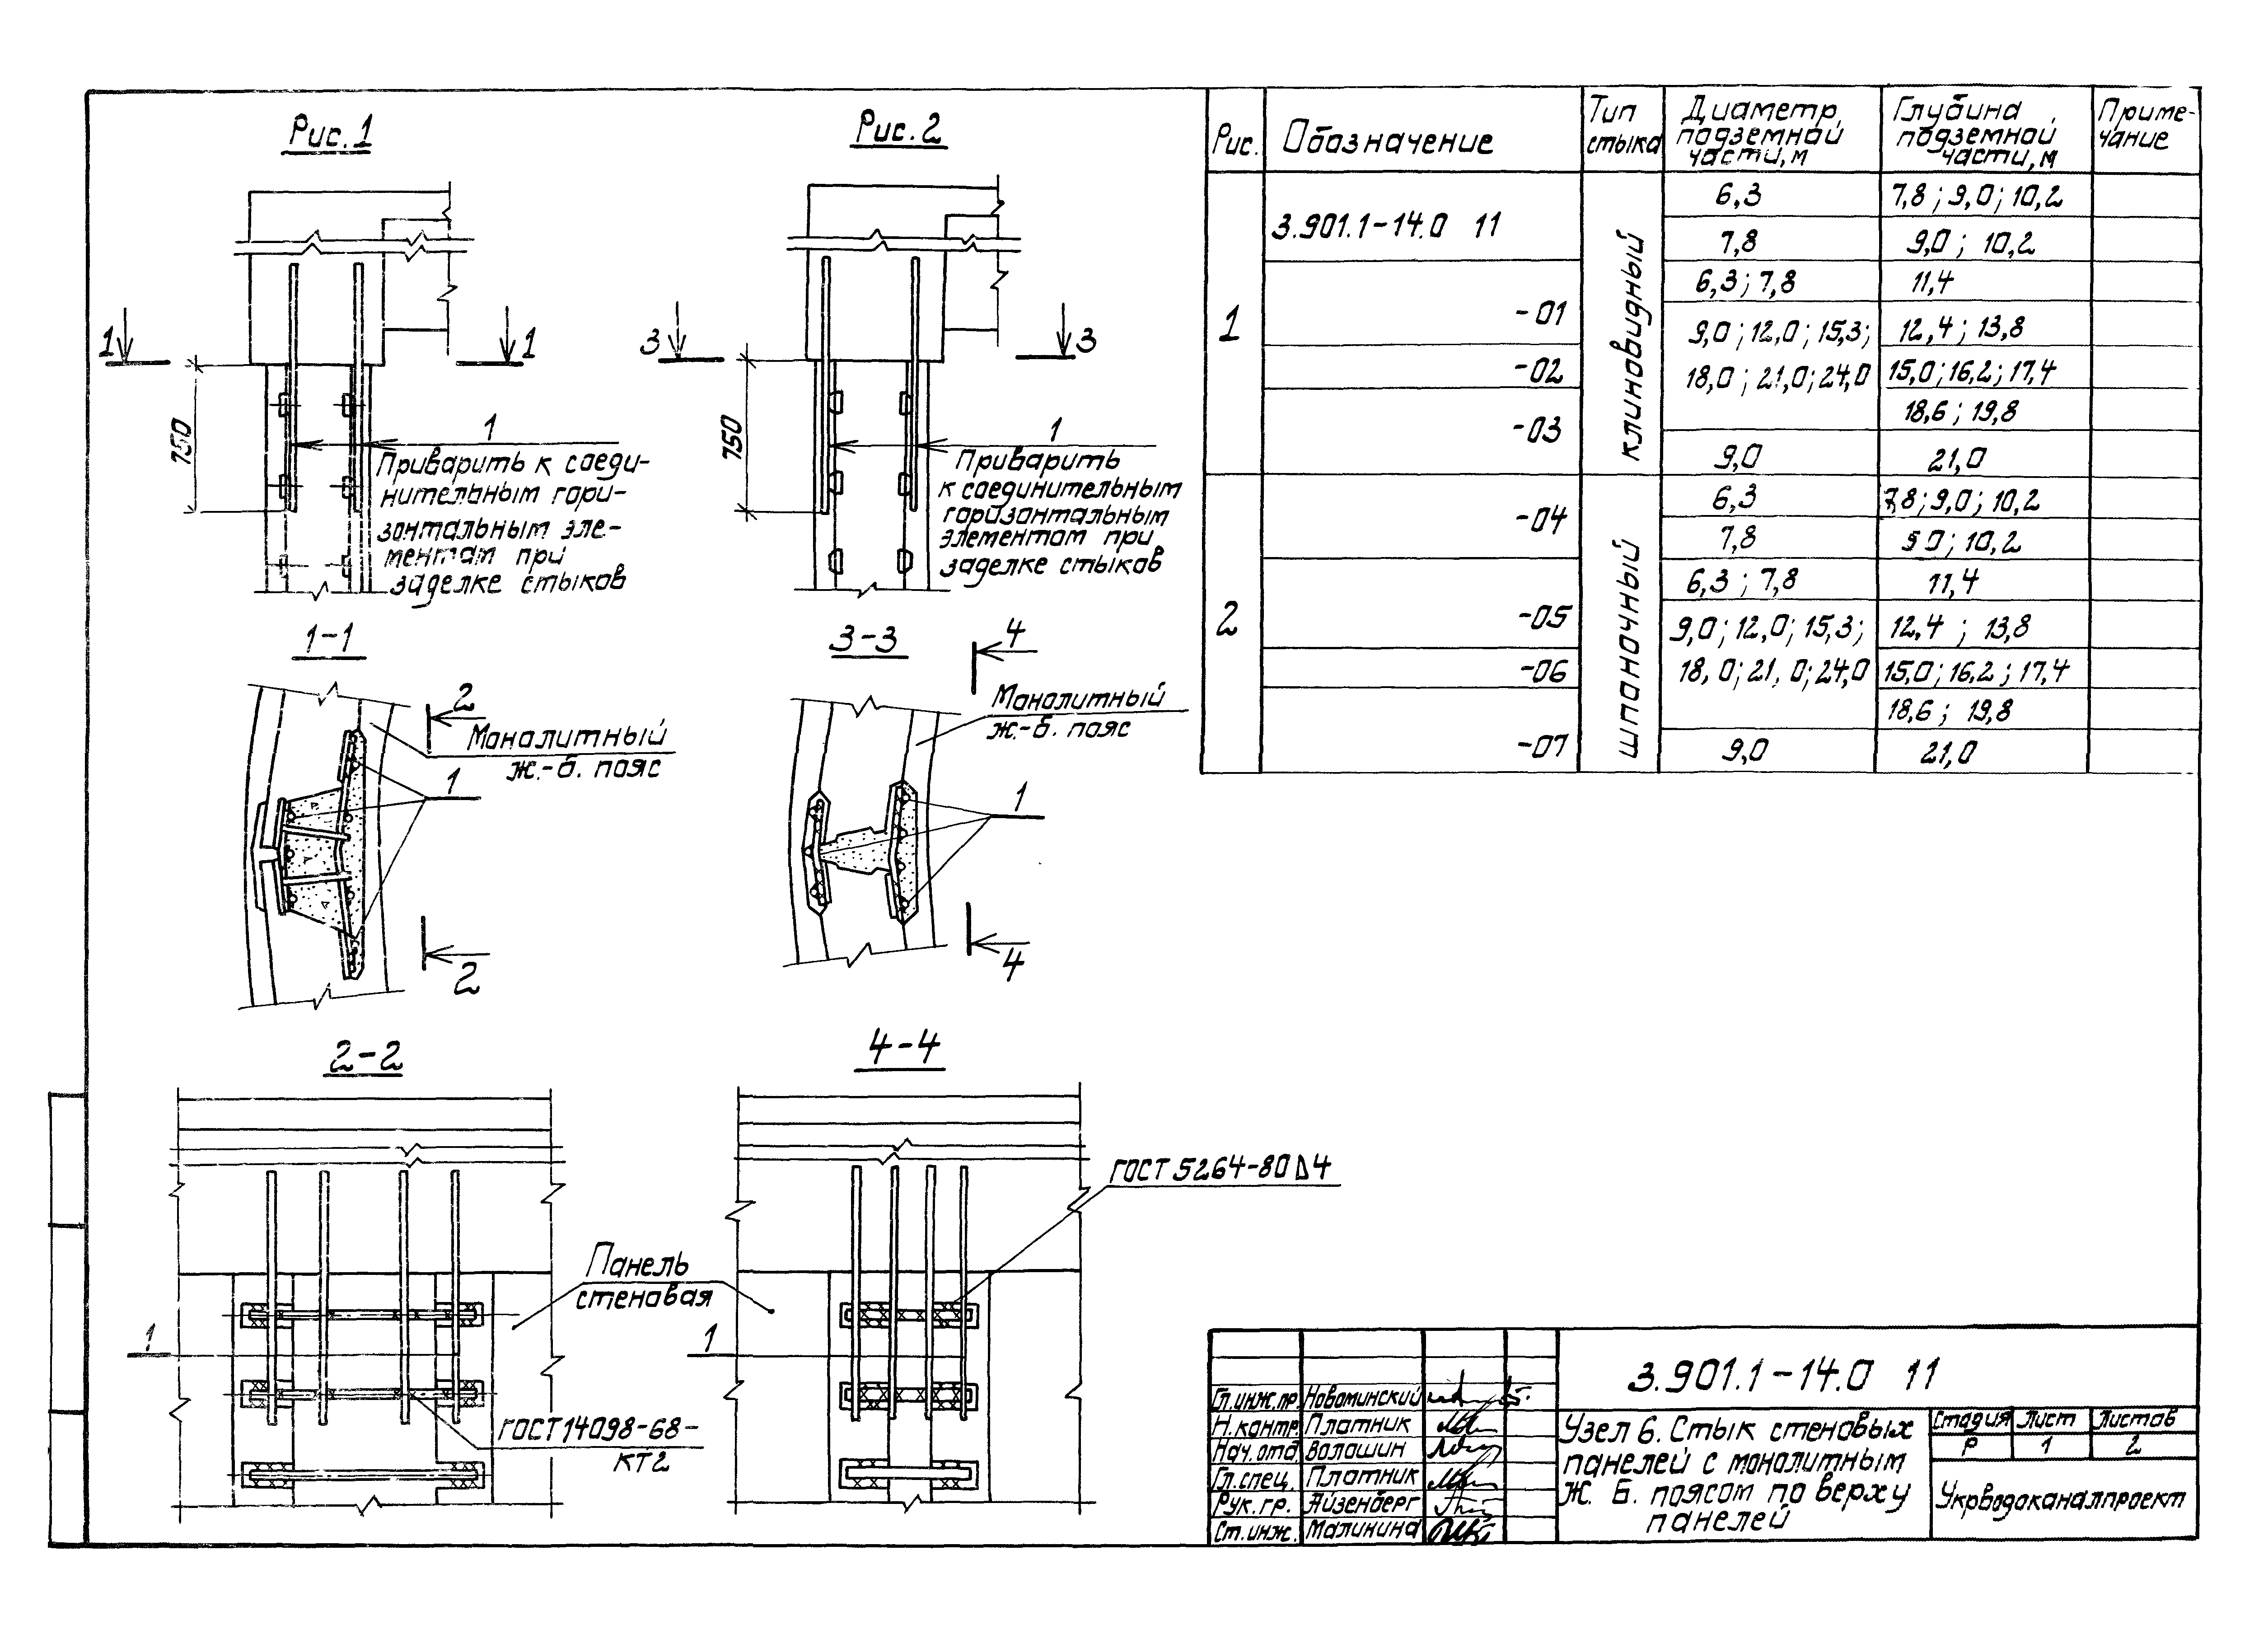 Рис.1
1
1
750
1
Приварить к соеди-
нительным гори-
зонтальным эле-
ментам при
заделке стыков
Рис.2
3
3
750
1
Приварить
к соединительным
горизонтальным
элементам при
заделке стыков
1-1
2
Монолитный
ж.-б. пояс
1
2
3-3
4
Монолитный
ж.-б. пояс
1
4
2-2
Панель
стеновая
1
ГОСТ 14098-68-
КТ2
4-4
ГОСТ 5264-80 Δ4
1
Рис. Обозначение Тип стыка Диаметр подземной части, м Глубина подземной части, м Приме-чание
1 3.901.1-14.0 11 клиновидный 6,3 7,8; 9,0; 10,2
7,8 9,0; 10,2
6,3; 7,8 11,4
-01
9,0; 12,0; 15,3; 12,4; 13,8
-02 18,0; 21,0; 24,0 15,0; 16,2; 17,4
-03 18,6; 19,8
9,0 21,0
2 -04 шпоночный 6,3 7,8; 9,0; 10,2
7,8 9 0; 10,2
6,3; 7,8 11,4
-05 9,0; 12,0; 15,3; 12,4; 13,8
-06 18,0; 21,0; 24,0 15,0; 16,2; 17,4
18,6; 19,8
-07 9,0 21,0
3.901.1-14.0 11
Гл.инж.пр. Новоминский
Н.контр. Платник
Нач.отд. Волошин
Гл.спец. Платник
Рук.гр. Айзенберг
Ст.инж. Малинина
Узел 6. Стык стеновых
панелей с монолитным
Ж. Б. поясом по верху
панелей
Стадия Лист Листов
Р 1 2
Укрводоканалпроект